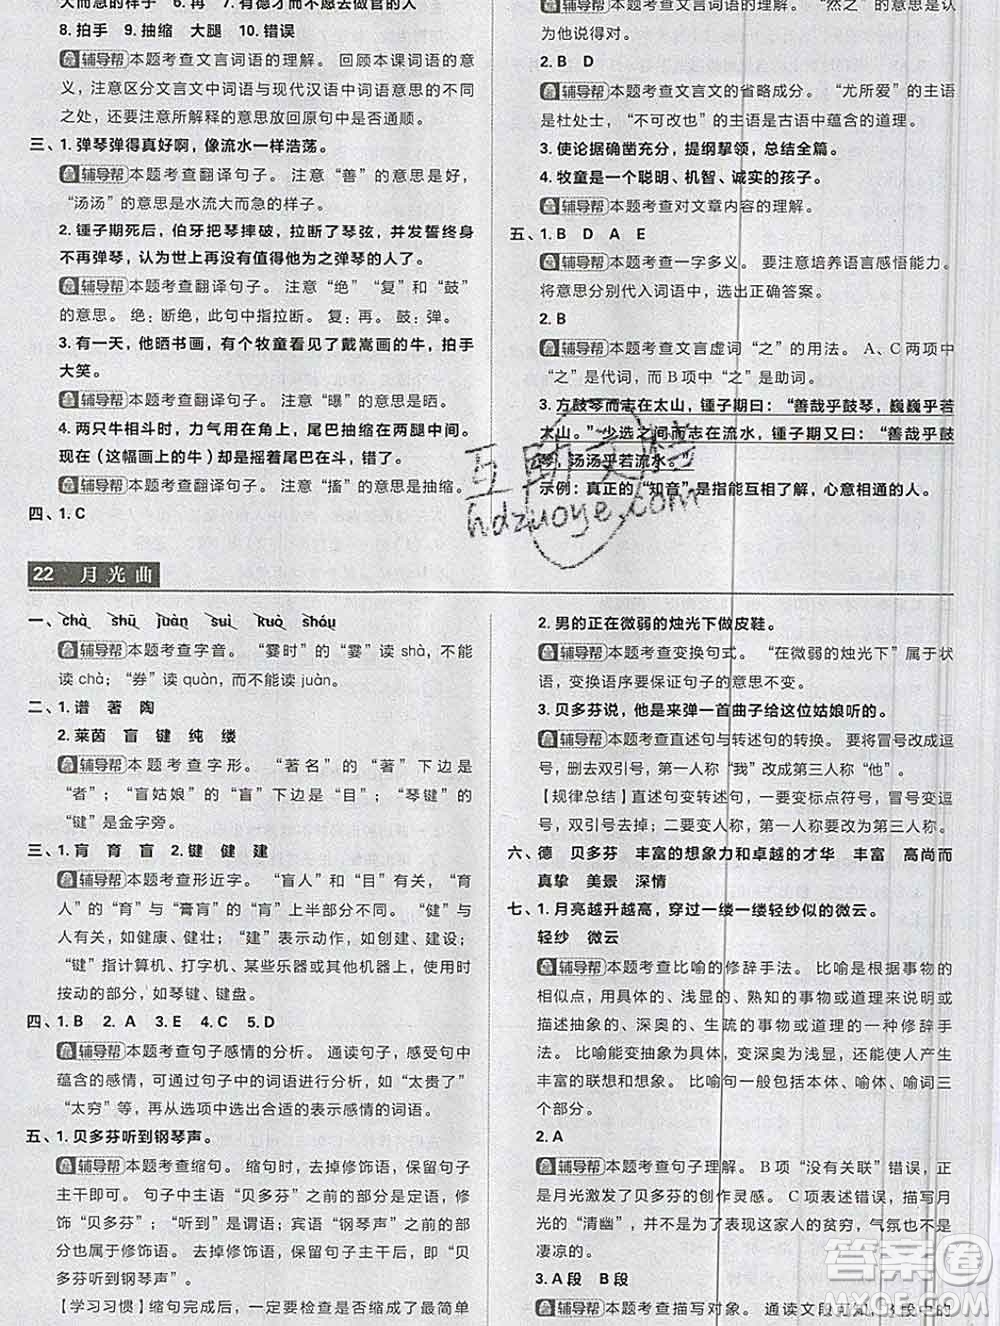 大而急的样子 6. 再 7. 德才而不愿去做官的人
8. 拍手 9. 抽缩 大腿 10. 错误
辅导帮 本题考查文言词语的理解。回顾本课词语的意
义，注意区分文言文中词语与现代汉语中词语意思的不同
之处，还要注意所解释的意思放回原句中是否通顺。
三、1. 弹琴弹得真好啊，像流水一样浩荡。
辅导帮 本题考查翻译句子。注意“善”的意思是好，
“汤汤”的意思是水流大而急的样子。
2. 锺子期死后，伯牙把琴摔破，拉断了琴弦，并发誓终身
不再弹琴，认为世上再没有值得他为之弹琴的人了。
辅导帮 本题考查翻译句子。注意“绝”“复”和“鼓”
的意思。绝：断绝，此句中指拉断。复：再。鼓：弹。
3. 有一天，他晒书画，有个牧童看见了戴嵩画的牛，拍手
大笑。
辅导帮 本题考查翻译句子。注意“曝”的意思是晒。
4. 两只牛相斗时，力气用在角上，尾巴抽缩在两腿中间。
现在（这幅画上的牛）却是摇着尾巴在斗，错了。
辅导帮 本题考查翻译句子。注意“搐”的意思是抽缩。
四、1. C
辅导帮 本题考查文言词语的理解。“然之”的意思是认
为他说得对。
2. B D
辅导帮 本题考查文言文的省略成分。“尤所爱”的主语
是杜处士，“不可改也”的主语是古语中蕴含的道理。
3. 使论据确凿充分，提纲挈领，总结全篇。
4. 牧童是一个聪明、机智、诚实的孩子。
辅导帮 本题考查对文章内容的理解。
五、1. B D A E
辅导帮 本题考查一字多义。要注意培养语言感悟能力。
将意思分别代入词语中，选出正确答案。
2. B
辅导帮 本题考查文言虚词“之”的用法。A、C两项中
“之”是代词，而B项中“之”是助词。
3. 方鼓琴而志在太山，锺子期曰：“善哉乎鼓琴，巍巍乎若
太山。”少选之间而志在流水，锺子期又曰：“善哉乎鼓
琴，汤汤乎若流水。”
示例：真正的“知音”是指能互相了解，心意相通的人。
互助文档
hdzuoye.com
22 月光曲
一、chà shū juàn suì kuò shóu
辅导帮 本题考查字音。“霎时”的“霎”读 shà，不能
读 chà；“券”读 quàn，而不能读 juàn。
二、1. 谱 著 陶
2. 莱茵 盲 键 纯 缕
辅导帮 本题考查字形。“著名”的“著”下边是
“者”；“盲姑娘”的“盲”下边是“目”；“琴键”的
“键”是金字旁。
三、1. 肓 育 盲 2. 键 健 建
辅导帮 本题考查形近字。“盲人”和“目”有关，“育
人”的“育”与“膏肓”的“肓”上半部分相同。“健”与
人有关，如健康、健壮；“建”表示动作，如创建、建设；
“键”指计算机、打字机、某些乐器或其他机器上，使用时
按动的部分，如琴键、键盘。
四、1. B 2. A 3. E 4. C 5. D
辅导帮 本题考查句子感情的分析。通读句子，感受句中
蕴含的感情，可通过句子中的词语进行分析，如“太贵了”
“太穷”等，再从选项中选出合适的表示感情的词语。
五、1. 贝多芬听到钢琴声。
辅导帮 本题考查缩句。缩句时，去掉修饰语，保留句子
主干即可。句子中主语“贝多芬”之前的部分是定语，修
饰“贝多芬”；“听到”是谓语；宾语“钢琴声”之前的部
分也属于修饰语。去掉修饰语，保留句子主干后，即“贝
多芬听到钢琴声”。
【学习习惯】缩句完成后，一定要检查是否缩成了最简单
2. 男的正在微弱的烛光下做皮鞋。
辅导帮 本题考查变换句式。“在微弱的烛光下”属于状
语，变换语序要保证句子的意思不变。
3. 贝多芬说，他是来弹一首曲子给这位姑娘听的。
辅导帮 本题考查直述句与转述句的转换。要将冒号改成逗
号，删去双引号，第一人称“我”改成第三人称“他”。
【规律总结】直述句变转述句，一要变标点符号，冒号变逗
号，双引号去掉；二要变人称，第一人称要改为第三人称。
六、德 贝多芬 丰富的想象力和卓越的才华 丰富 高尚而
真挚 美景 深情
七、1. 月亮越升越高，穿过一缕一缕轻纱似的微云。
轻纱 微云
辅导帮 本题考查比喻的修辞手法。比喻是根据事物的
相似点，用具体的、浅显的、熟知的事物或道理来说明或
描述抽象的、深奥的、生疏的事物或道理的一种修辞手
法。比喻能变抽象为具体，变深奥为浅显，还能使人产生
丰富的联想和想象。比喻句一般包括本体、喻体、喻词三
个部分。
2. A
辅导帮 本题考查句子理解。B项“没有关联”错误，正
是月光激发了贝多芬的创作灵感。C项表述错误，描写月
光的“清幽”，并不是为了表现这家人的贫穷，气氛也不是
凄凉的。
3. A段 B段
辅导帮 本题考查描写对象。通读文段可知，B段中的
答案圈
MXQE.COM